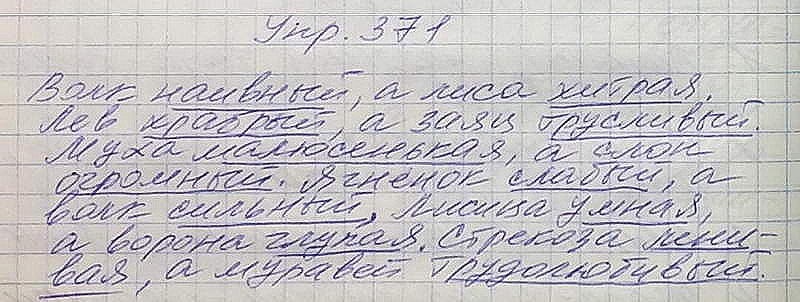 Упр. 371
Волк наивный, а лиса хитрая.
Лев храбрый, а заяц трусливый.
Муха малюсенькая, а слон
огромный. Ягнёнок слабый, а
волк сильный. Лисица умная,
а ворона глупая. Стрекоза лени-
вая, а муравей трудолюбивый.